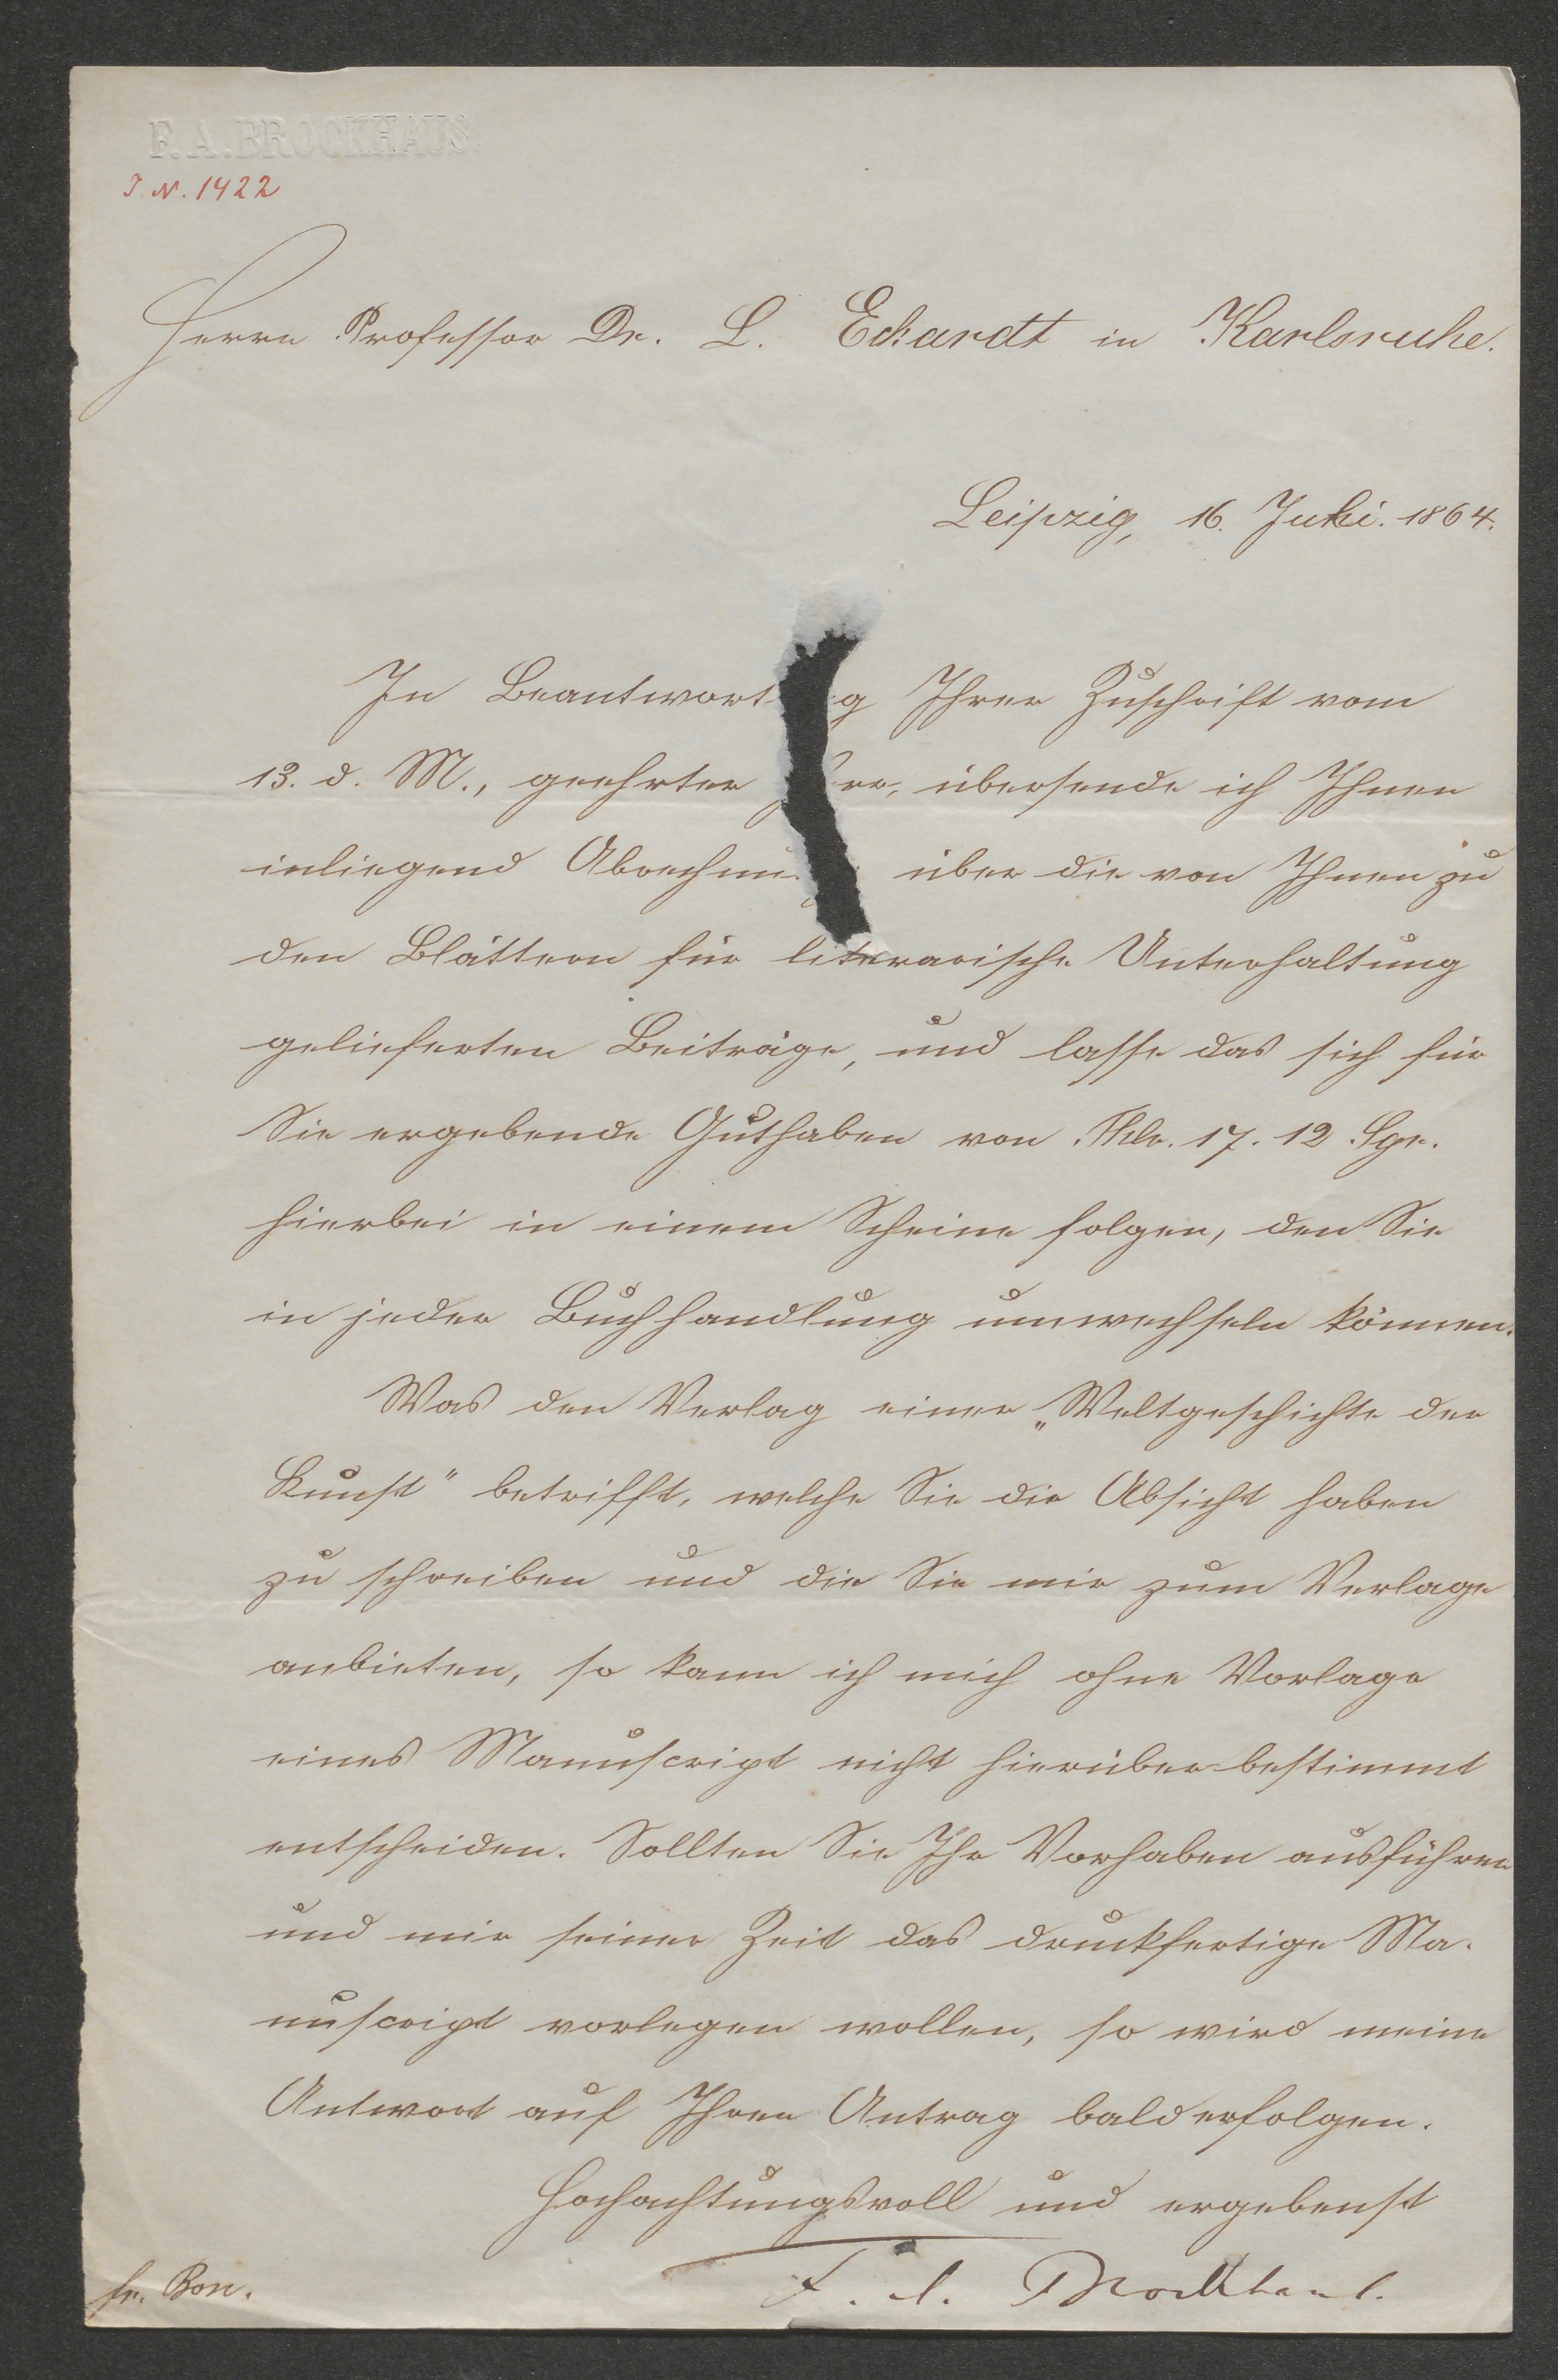 F. A. BROCKHAUS.
J. N. 1422
Herrn Professor Dr. L. Eckardt in Karlsruhe.
Leipzig, 16. Juli. 1864.
In Beantwort g Ihrer Zuschrift vom
13. d. M., geehrter rr, übersende ich Ihnen
inliegend Abrechnu über die von Ihnen zu
den Blättern für literarische Unterhaltung
gelieferten Beiträge, und lasse das sich für
Sie ergebende Guthaben von Thlr. 17. 12 Sgr.
hierbei in einem Scheine folgen, den Sie
in jeder Buchhandlung umwechseln können.
Was den Verlag einer „Weltgeschichte der
Kunst" betrifft, welche Sie die Absicht haben
zu schreiben und die Sie mir zum Verlage
anbieten, so kann ich mich ohne Vorlage
eines Manuscript nicht hierüber bestimmt
entscheiden. Sollten Sie Ihr Vorhaben ausführen
und mir seiner Zeit das druckfertige Ma-
nuscript vorlegen wollen, so wird meine
Antwort auf Ihren Antrag bald erfolgen.
Hochachtungsvoll und ergebenst
F. A. Brockhaus.
fr. Bon.